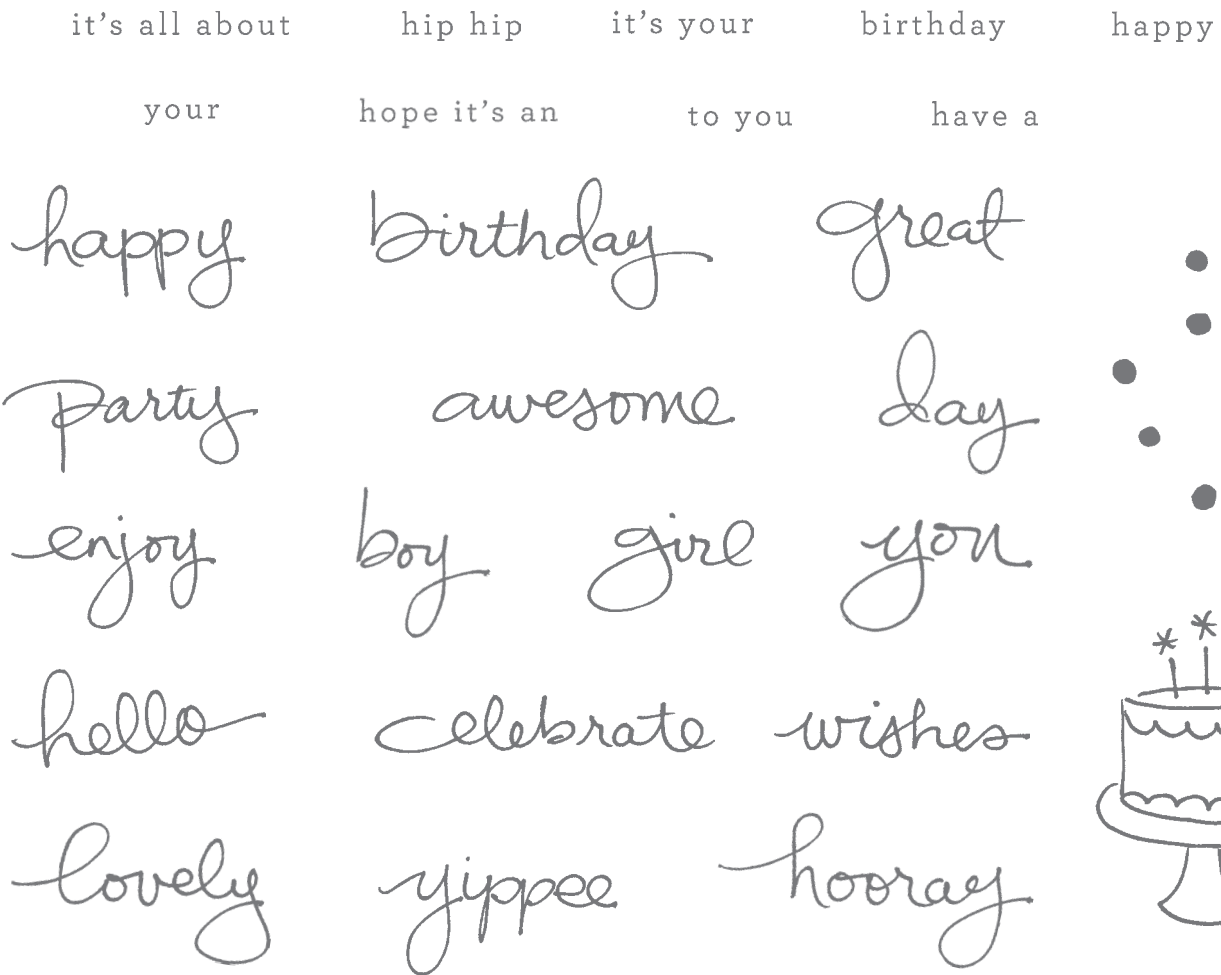 it's all about hip hip it's your birthday happy
your hope it's an to you have a
happy birthday great
party awesome day
enjoy boy girl you
hello celebrate wishes
lovely yippee hooray